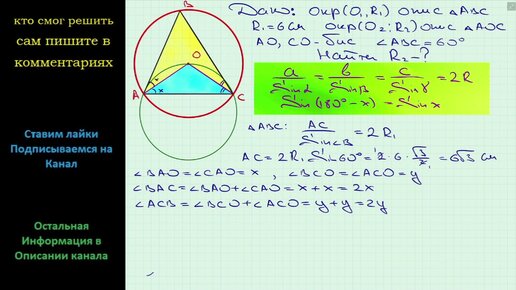 кто смог решить
сам пишите в
комментариях
Ставим лайки
Подписываемся на
Канал
Остальная
Информация в
Описании канала
B
O
x
x
A
C
Дано: Окр(O₁,R₁) опис △ABC
R₁=6см Окр(O₂;R₂) опис △AOC
AO, CO - бис ∠ABC=60°
Найти R₂-?
a/Sinα = b/Sinβ = c/Sinγ = 2R
Sin(180°-x) = Sinx
△ABC: AC/Sin∠B = 2R₁
AC = 2R₁ Sin60° = 2·6·√3/2 = 6√3 см
∠BAO=∠CAO=x , ∠BCO=∠ACO=y
∠BAC=∠BAO+∠CAO=x+x=2x
∠ACB=∠BCO+∠ACO=y+y=2y